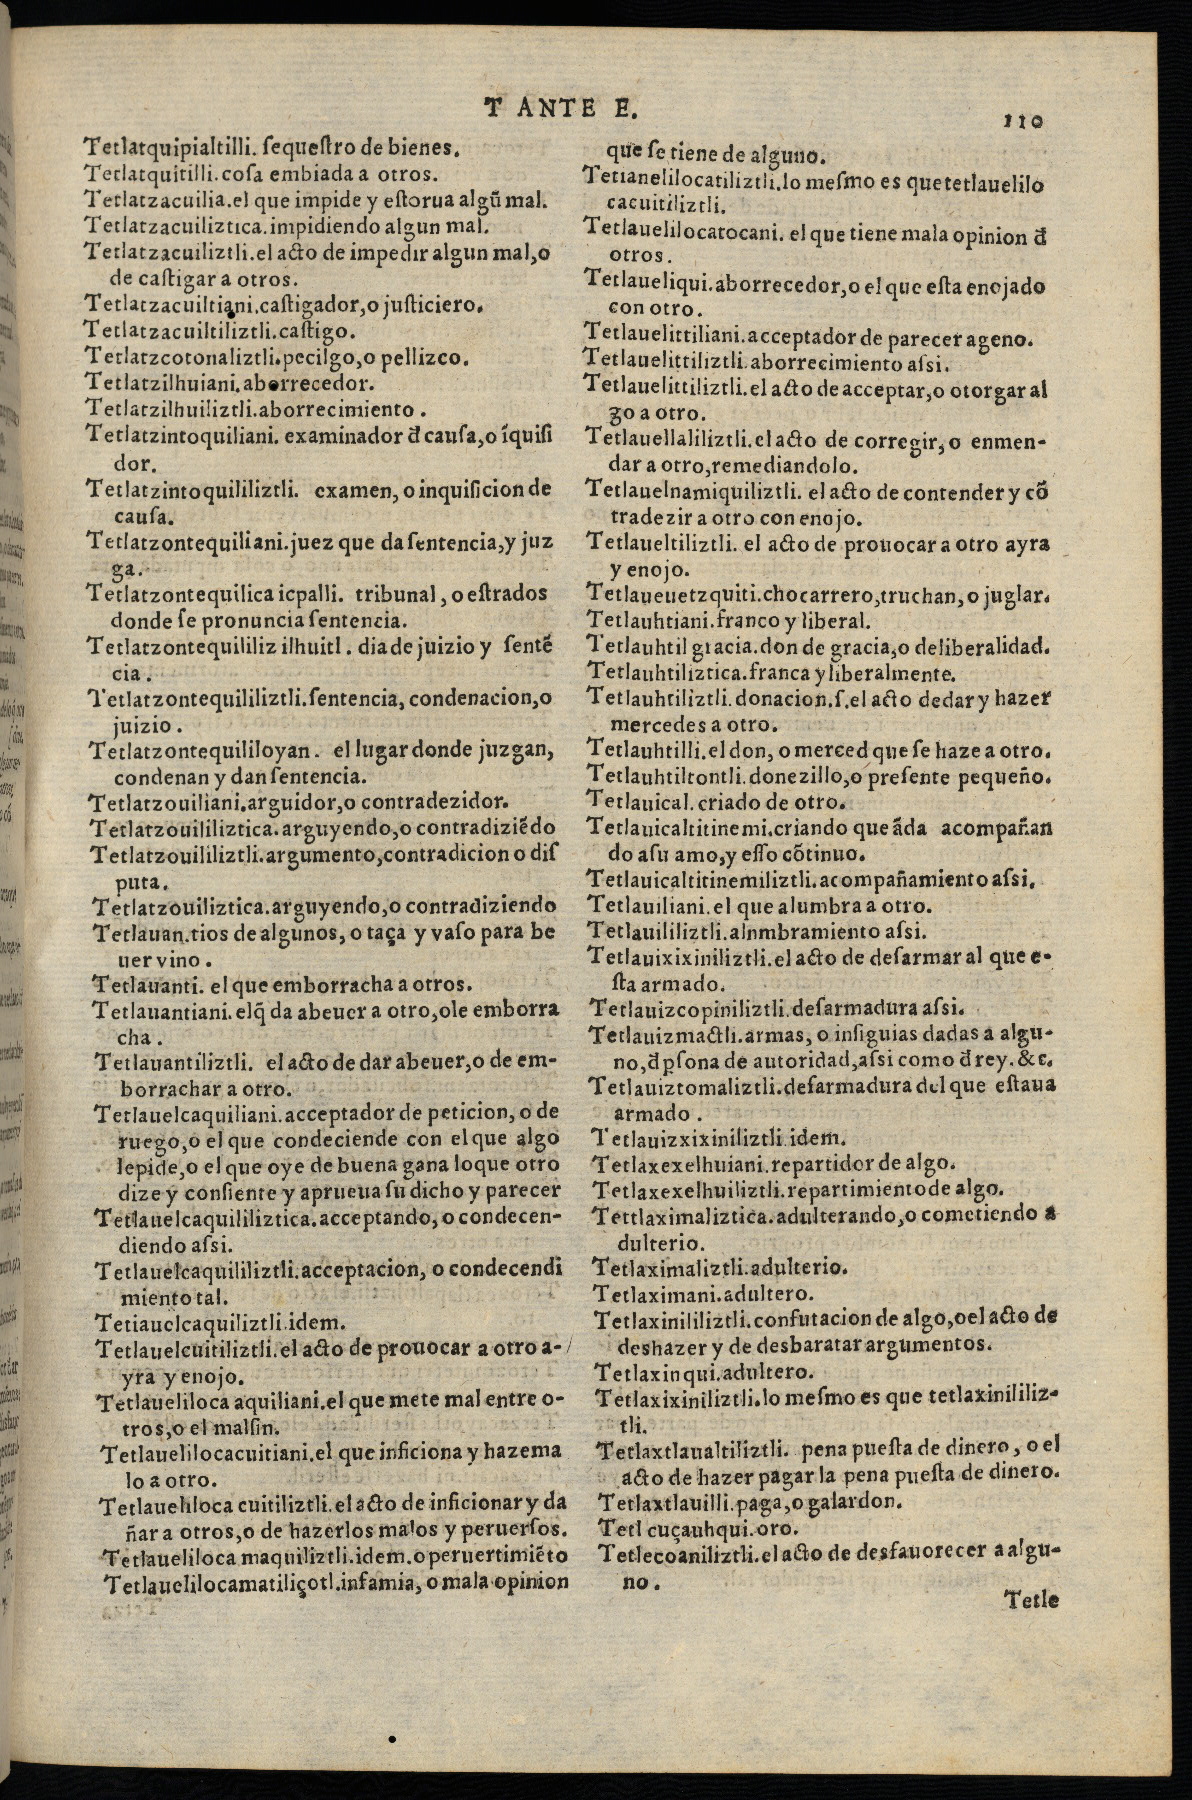 T ANTE E.
110
Tetlatquipialtilli. sequestro de bienes.
Tetlatquitilli. cosa embiada a otros.
Tetlatzacuilia. el que impide y estorua algũ mal.
Tetlatzacuiliztica. impidiendo algun mal.
Tetlatzacuiliztli. el acto de impedir algun mal, o
de castigar a otros.
Tetlatzacuiltiani. castigador, o justiciero.
Tetlatzacuiltiliztli. castigo.
Tetlatzcotonaliztli. pecilgo, o pellizco.
Tetlatzilhuiani. aborrecedor.
Tetlatzilhuiliztli. aborrecimiento.
Tetlatzintoquiliani. examinador đ causa, o íquisi
dor.
Tetlatzintoquililiztli. examen, o inquisicion de
causa.
Tetlatzontequiliani. juez que da sentencia, y juz
ga.
Tetlatzontequilica icpalli. tribunal, o estrados
donde se pronuncia sentencia.
Tetlatzontequililiz ilhuitl. dia de juizio y sentẽ
cia.
Tetlatzontequililiztli. sentencia, condenacion, o
juizio.
Tetlatzontequililoyan. el lugar donde juzgan,
condenan y dan sentencia.
Tetlatzouiliani. arguidor, o contradezidor.
Tetlatzouililiztica. arguyendo, o contradiziẽdo
Tetlatzouililiztli. argumento, contradicion o dis
puta.
Tetlatzouiliztica. arguyendo, o contradiziendo
Tetlauan. tios de algunos, o taça y vaso para be
uer vino.
Tetlauanti. el que emborracha a otros.
Tetlauantiani. elq̃ da abeuer a otro, ole emborra
cha.
Tetlauantiliztli. el acto de dar abeuer, o de em-
borrachar a otro.
Tetlauelcaquiliani. acceptador de peticion, o de
ruego, o el que condeciende con el que algo
le pide, o el que oye de buena gana lo que otro
dize y consiente y aprueua su dicho y parecer
Tetlauelcaquililiztica. acceptando, o condecen-
diendo assi.
Tetlauelcaquililiztli. acceptacion, o condecendi
miento tal.
Tetiauelcaquiliztli. idem.
Tetlauelcuitiliztli. el acto de prouocar a otro a-
yra y enojo.
Tetlaueliloca aquiliani. el que mete mal entre o-
tros, o el malsin.
Tetlauelilocacuitiani. el que inficiona y hazema
lo a otro.
Tetlaueliloca cuitiliztli. el acto de inficionar y da
ñar a otros, o de hazerlos malos y peruersos.
Tetlaueliloca maquiliztli. idem. o peruertimiẽto
Tetlauelilocamatiliçotl. infamia, o mala opinion
que se tiene de alguno.
Tetianelilocatiliztli. lo mesmo es que tetlauelilo
cacuitiliztli.
Tetlauelilocatocani. el que tiene mala opinion đ
otros.
Tetlaueliqui. aborrecedor, o el que esta enojado
con otro.
Tetlauelittiliani. acceptador de parecer ageno.
Tetlauelittiliztli. aborrecimiento assi.
Tetlauelittiliztli. el acto de acceptar, o otorgar al
go a otro.
Tetlauellaliliztli. el acto de corregir, o enmen-
dar a otro, remediandolo.
Tetlauelnamiquiliztli. el acto de contender y cõ
tradezir a otro con enojo.
Tetlaueltiliztli. el acto de prouocar a otro ayra
y enojo.
Tetlaueuetzquiti. chocarrero, truchan, o juglar.
Tetlauhtiani. franco y liberal.
Tetlauhtil gracia. don de gracia, o deliberalidad.
Tetlauhtiliztica. franca y liberalmente.
Tetlauhtiliztli. donacion. s. el acto dedar y hazer
mercedes a otro.
Tetlauhtilli. el don, o merced que se haze a otro.
Tetlauhtiltontli. donezillo, o presente pequeño.
Tetlauical. criado de otro.
Tetlauicaltitinemi. criando que ãda acompañan
do asu amo, y esso cõtinuo.
Tetlauicaltitinemiliztli. acompañamiento assi.
Tetlauiliani. el que alumbra a otro.
Tetlauililiztli. alnmbramiento assi.
Tetlauixixiniliztli. el acto de desarmar al que e-
sta armado.
Tetlauizcopiniliztli. desarmadura assi.
Tetlauizmactli. armas, o insiguias dadas a algu-
no, đ ꝑsona de autoridad, assi como đ rey. &c.
Tetlauiztomaliztli. desarmadura del que estaua
armado.
Tetlauizxixiniliztli. idem.
Tetlaxexelhuiani. repartidor de algo.
Tetlaxexelhuiliztli. repartimiento de algo.
Tettlaximaliztica. adulterando, o cometiendo a
dulterio.
Tetlaximaliztli. adulterio.
Tetlaximani. adultero.
Tetlaxinililiztli. confutacion de algo, oel acto de
deshazer y de desbaratar argumentos.
Tetlaxinqui. adultero.
Tetlaxixiniliztli. lo mesmo es que tetlaxinililiz-
tli.
Tetlaxtlaualtiliztli. pena puesta de dinero, o el
acto de hazer pagar la pena puesta de dinero.
Tetlaxtlauilli. paga, o galardon.
Tetl cuçauhqui. oro.
Tetlecoaniliztli. el acto de desfauorecer a algu-
no.
Tetle